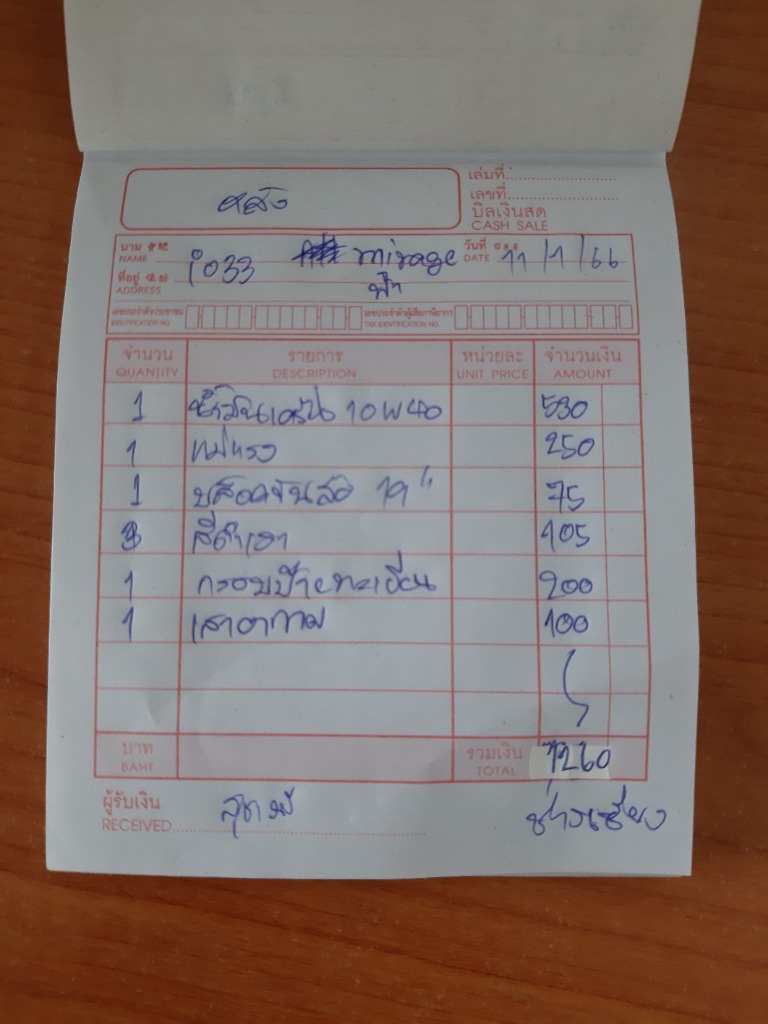 เล่มที่
เลขที่
บิลเงินสด
CASH SALE
นาม
NAME
1033 mirage
ฟ้า
วันที่
DATE 11/1/66
ที่อยู่
ADDRESS
เลขประจำตัวประชาชน
IDENTIFICATION NO.
เลขประจำตัวผู้เสียภาษีอากร
TAX IDENTIFICATION NO.
จำนวน รายการ หน่วยละ จำนวนเงิน
QUANTITY DESCRIPTION UNIT PRICE AMOUNT
1 น้ำมันเครื่อง 10W40 530
1 แม่แรง 250
1 บล็อคขันล้อ 19" 75
3 สีดำเงา 105
1 กรอบป้ายทะเบียน 200
1 เสาอากาศ 100
บาท รวมเงิน 1260
BAHT TOTAL
ผู้รับเงิน
RECEIVED